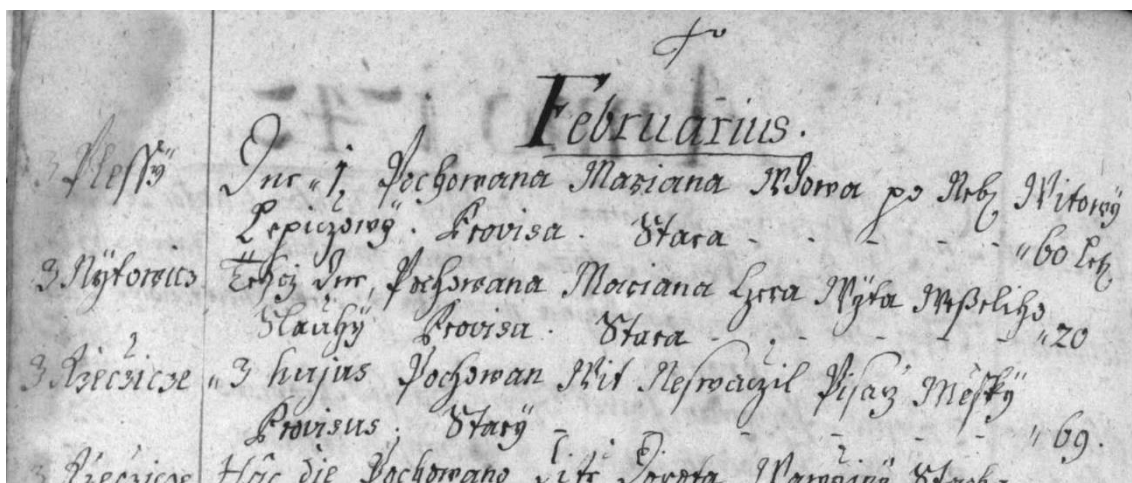 Februarius.
z Plessÿ Dne 1, Pochowana Mariana Wdowa po Neb. Witowÿ
Lepiczowÿ. Provisa. Stara - - - - - 60 Let.
z Nÿtowicz Tehoz Dne, Pochowana Mariana Czera Wÿta Weßeliho
Slauhÿ Provisa. Stara - - - - - 20
z Rzeczicze 3 hujus Pochowan Wit Neswaczil Pisarz Měskÿ
Provisus. Starÿ - - - - - 69.
z Rzeczicze Hâc die Pochowano Dite Dorota